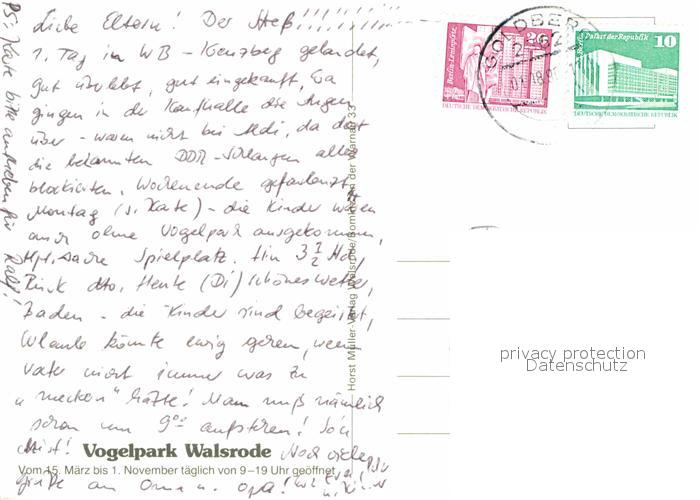 Liebe Eltern! Der Streß!!!!!!!!!!
1. Tag in WB - Kenzberg gelandet,
gut überlebt, gut eingekauft, Da
gingen in der Kaufhalle die Augen
über - waren nicht bei Aldi, da dort
die bekannten DDR-Schlangen alles
blockierten. Wochenende gefaulenzt,
Montag (s. Karte) - die Kinder wären
auch ohne Vogelpark ausgekommen,
Hpt.sache Spielplatz. Hin 3 1/2 Std,
Rück dto. Heute (Di) schönes Wetter,
Baden - die Kinder sind begeistert,
Urlaub könnte ewig gehen, wenn
Vater nicht immer was zu
"meckern" hätte! Man muß nämlich
schon um 9°° aufstehen! So'n
Mist!
Noch viele
Grüße an Oma u. Opa!
PS: Karte bitte aufheben für Ralf!
Vogelpark Walsrode
Vom 15. März bis 1. November täglich von 9–19 Uhr geöffnet
Horst Müller-Verlag Walsrode/Bomlitz, an der Warnau 33
GOLDBERG
2862
Berlin-Leninplatz
20
DEUTSCHE DEMOKRATISCHE REPUBLIK
Berlin · Palast der Republik
10
DEUTSCHE DEMOKRATISCHE REPUBLIK
privacy protection
Datenschutz